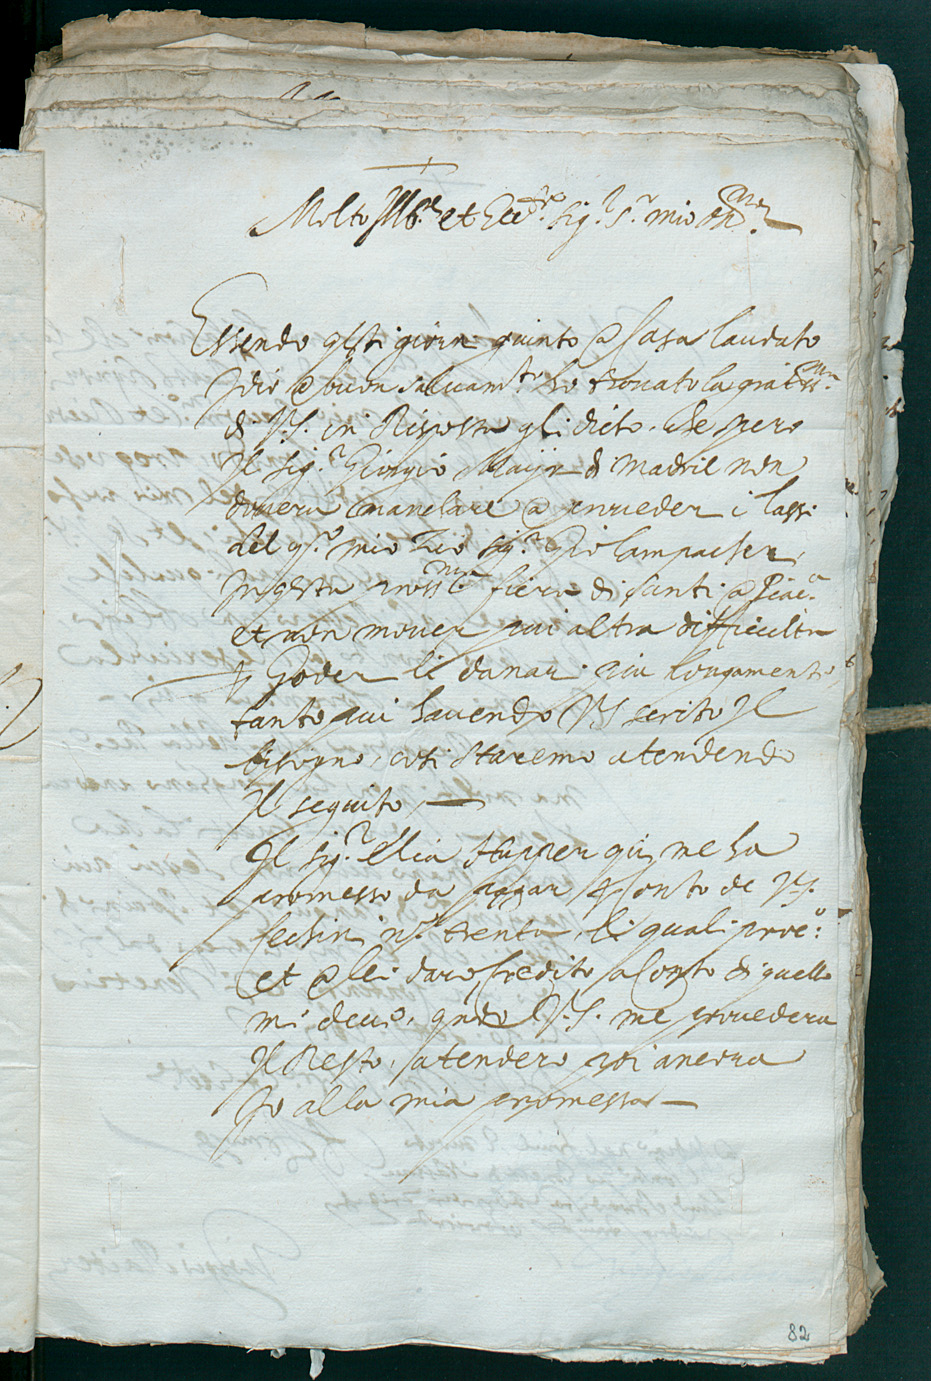 Molto Ill.re et Ecc.mo Sig.r S.r mio
Essendo q͂sti giorni gionto a Casa laudato
Idio a buon saluam.to ho trouato la gratiss.ma
di V.S. in Risposta gli dico che spero
Il Sig.r Giorgio Mayr di Madril non
douera manchare a proueder i lassi
del q.m mio Zio Sig.r Gio lampacher
In q͂sta pross.ma fiera di santi a Piac.a
et non mouer piu altra difficulta
p goder li danari piu longamente,
tanto piu hauendo V.S. scrito Il
bisogno, cosi staremo atendendo
Il seguito
Il Sig.r Elia Hupper qui me ha
promesso da pagar a Conto de V.S.
Cechini n.o trenta, li quali
et a lei daro Credito a Conto di quello
mi deue, q͂ndo V.S. me prouedera
Il Resto, atendero poi ancora
Io alla mia promessa
82